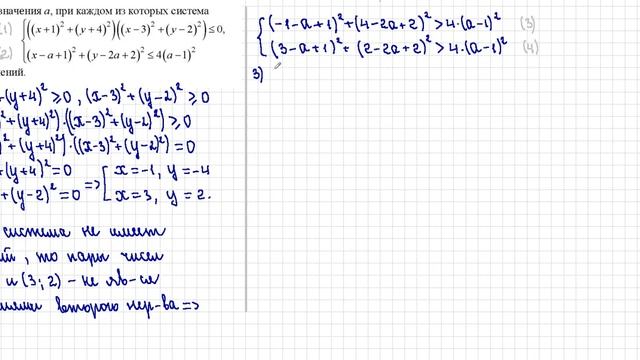 значения a, при каждом из которых система
(1) { ((x+1)²+(y+4)²)((x−3)²+(y−2)²)≤0,
(2) (x−a+1)²+(y−2a+2)²≤4(a−1)²
ений.
(y+4)²⩾0, (x−3)²+(y−2)²⩾0
²+(y+4)²)·((x−3)²+(y−2)²)⩾0
²+(y+4)²)·((x−3)²+(y−2)²)=0
+(y+4)²=0
+(y−2)²=0 => [ x=−1, y=−4
x=3, y=2.
система не имеет
то пары чисел
и (3; 2) - не яв-ся
второго нер-ва =>
{ (−1−a+1)²+(4−2a+2)²>4·(a−1)² (3)
(3−a+1)²+(2−2a+2)²>4·(a−1)² (4)
3)